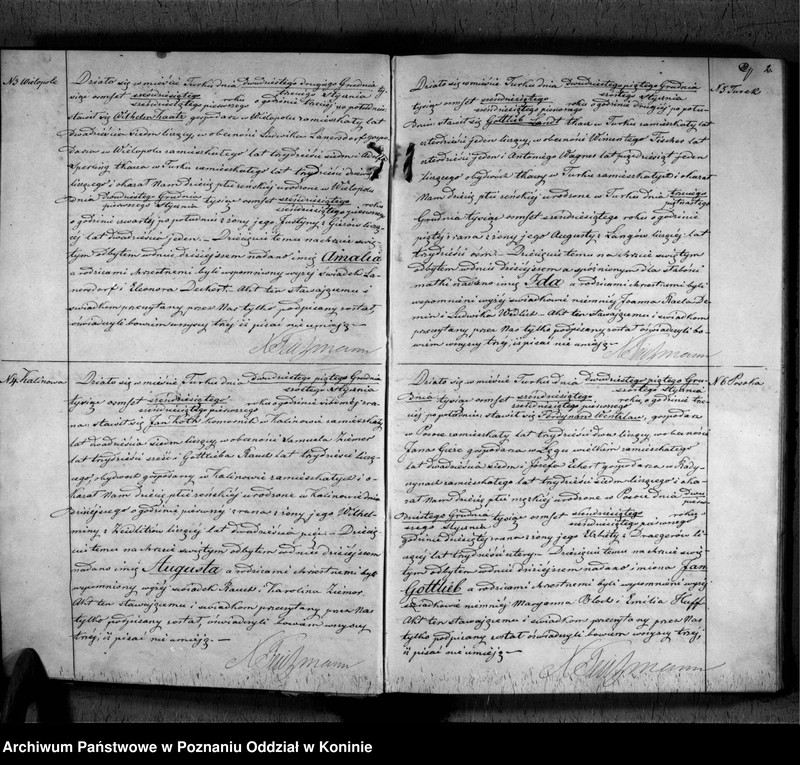 N 3 Wielopole
Działo się w mieście Turku dnia dwudziestego drugiego Grudnia
trzeciego Stycznia
tysiąc osmset sześćdziesiątego roku o godzinie trzeciej po południu
sześćdziesiątego pierwszego
stawił się Wilhelm gospodarz w Wielopolu zamieszkały lat
dwadzieścia siedm liczący, w obecności Ludwika
w Wielopolu zamieszkałego lat trzydzieści siedm i
Sperling tkacza w Turku zamieszkałego lat trzydzieści
liczącego i okazał Nam dziecię płci żeńskiej urodzone w Wielopolu
dnia dwudziestego Grudnia tysiąc osmset sześćdziesiątego roku
pierwszego Stycznia sześćdziesiątego pierwszego
o godzinie czwartej po południu z żony jego Justyny z
lat dwadzieścia jeden – Dziecięciu temu na chrzcie świę-
tym odbytym w dniu dzisiejszem nadano imię Amalia
a rodzicami chrzestnemi byli wspomniony wyżej świadek
i Eleonora Deckert. Akt ten stawającemu i
świadkom przeczytany, przez Nas tylko podpisany został,
oświadczyli bowiem wszyscy trzej iż pisać nie umieją –
N 4 Kalinowa
Działo się w mieście Turku dnia dwudziestego piątego Grudnia
szóstego Stycznia
tysiąc osmset sześćdziesiątego roku o godzinie ra-
sześćdziesiątego pierwszego
no stawił się Jan komornik w Kalinowie zamieszkały
lat dwadzieścia siedm liczący w obecności Samuela
lat trzydzieści sześć i Gottlieba lat trzydzieści licz-
ącego, obydwóch gospodarzy w Kalinowie zamieszkałych i o-
kazał Nam dziecię płci żeńskiej urodzone w Kalinowie dnia
dzisiejszego o godzinie pierwszej z rana z żony jego Wilhel-
miny z liczącej lat dwadzieścia pięć – Dzieci-
ęciu temu na chrzcie świętym odbytym w dniu dzisiejszem
nadano imię Augusta a rodzicami chrzestnemi byli
wspomniony wyżej świadek i Karolina
Akt ten stawającemu i świadkom przeczytany przez Nas
tylko podpisany został, oświadczyli bowiem wszyscy
trzej, iż pisać nie umieją –
2
N 5 Turek
Działo się w mieście Turku dnia dwudziestego piątego Grudnia
szóstego Stycznia
tysiąc osmset sześćdziesiątego roku o godzinie drugiej po połu-
sześćdziesiątego pierwszego
dniu stawił się Gottlieb tkacz w Turku zamieszkały lat
czterdzieści jeden liczący, w obecności Wincentego Fischer lat
czterdzieści jeden i Antoniego Wagner lat pięćdziesiąt jeden
liczącego obydwóch tkaczy w Turku zamieszkałych i okazał
Nam dziecię płci żeńskiej urodzone w Turku dnia trzeciego
piętnastego
Grudnia tysiąc osmset sześćdziesiątego roku o godzinie
piątej z rana z żony jego Augusty z Langów liczącej lat
trzydzieści – Dziecięciu temu na chrzcie świętym
odbytym w dniu dzisiejszem a spóźnionym dla słabości
matki nadano imię Ida a rodzicami chrzestnemi byli
wspomnieni wyżej świadkowie niemniej Joanna
i Ludwika – Akt ten stawającemu i świadkom
przeczytany, przez Nas tylko podpisany został oświadczyli bo-
wiem wszyscy trzej, iż pisać nie umieją –
N 6
Działo się w mieście Turku dnia dwudziestego piątego Gru-
szóstego Stycznia
dnia tysiąc osmset sześćdziesiątego roku, o godzinie trze-
sześćdziesiątego pierwszego
ciej po południu, stawił się Ferdynand gospodarz
w zamieszkały lat trzydzieści dwa liczący, w obecności
Jana gospodarza w Łęgu wielkim zamieszkałego
lat dwadzieścia siedm i Józefa Eckert gospodarza w
zamieszkałego lat trzydzieści siedm liczącego i oka-
zał Nam dziecię płci męzkiej urodzone w dnia dwu-
dziestego Grudnia tysiąc osmset sześćdziesiątego roku
sześćdziesiątego pierwszego
godzinie dziesiątej z rana z żony jego Elżbiety z Draegerów li-
czącej lat trzydzieści cztery – Dziecięciu temu na chrzcie świę-
tym odbytym w dniu dzisiejszem nadano imiona Jan
Gottlieb a rodzicami chrzestnemi byli wspomnieni wyżej
świadkowie niemniej Maryanna Block i Emilia
Akt ten stawającemu i świadkom przeczytany przez Nas
tylko podpisany został oświadczyli bowiem wszyscy trzej,
iż pisać nie umieją –
Archiwum Państwowe w Poznaniu Oddział w Koninie